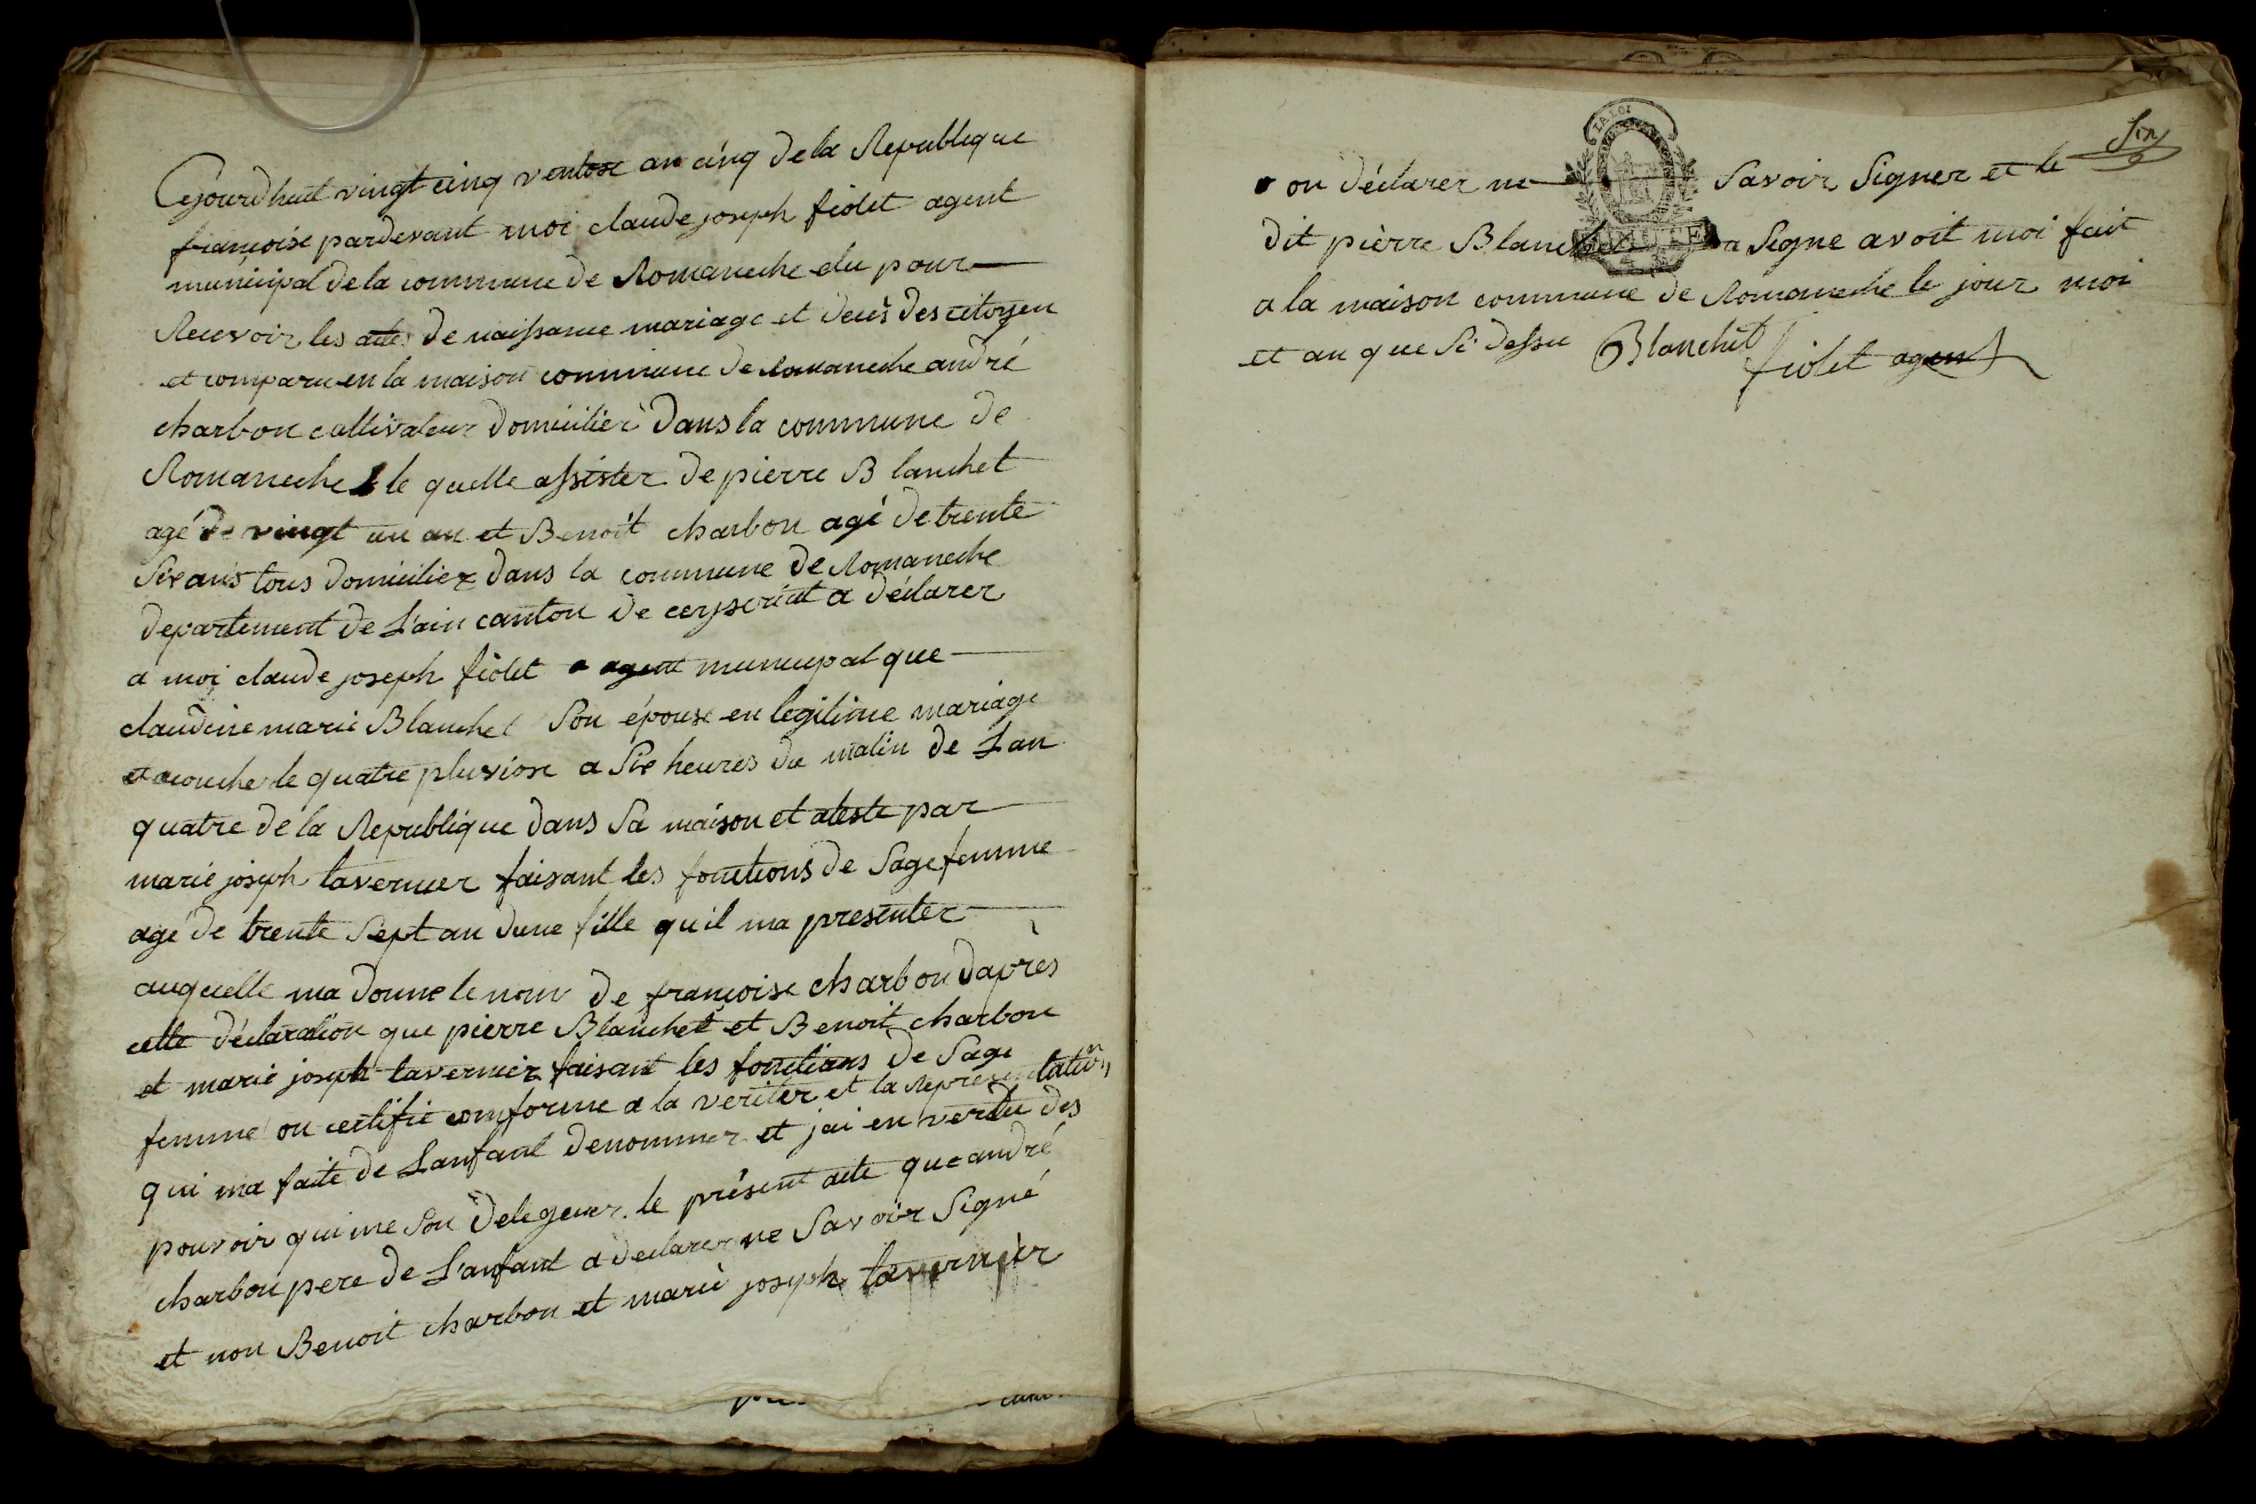 Cejourdhuit vingt cinq ventose an cinq de la Republique
francoise pardevant moi claude joseph fiolet agent
municipal de la commune de Romaneche elu pour
Recevoir les actes de naissance mariage et decès des citoyen
et comparu en la maison commune de Romaneche andré
charbon cultivateur domiciliér dans la commune de
Romaneche le quelle assister de pierre Blanchet
agé de vingt un an et Benoît charbon agé de trente
Six ans tous domiciliez dans la commune de Romaneche
departement de L'ain canton de ceyseriat a déclarer
a moi claude joseph fiolet agent municipal que
claudine marie Blanchet Son épouse en legitime mariage
et acouche le quatre pluviose a Six heures du matin de L'an
quatre de la Republique dans Sa maison et ateste par
marie joseph tavernier faisant les fonctions de Sage femme
agé de trente Sept an dune fille qu'il ma presenter
auquelle ma donne le nom de francoise charbon daprès
cette déclaration que pierre Blanchet et Benoit charbon
et marie joseph tavernier faisant les fonctions de Sage
femme on certifie comforme a la veriter et la representation
qui ma faite de Lanfant denommer et jai en vertu des
pouvoir qui me Son deleguer le présent acte que andré
charbon pere de L'anfant a declarer ne Savoir Signé
et non Benoit charbon et marie joseph tavernier
Six
on déclarer ne Savoir Signer et le
LA LOI
dit pièrre Blanchet a Signe avoit moi fait
a la maison commune de Romaneche le jour moi
et an que Si dessu Blanchet
fiolet agent